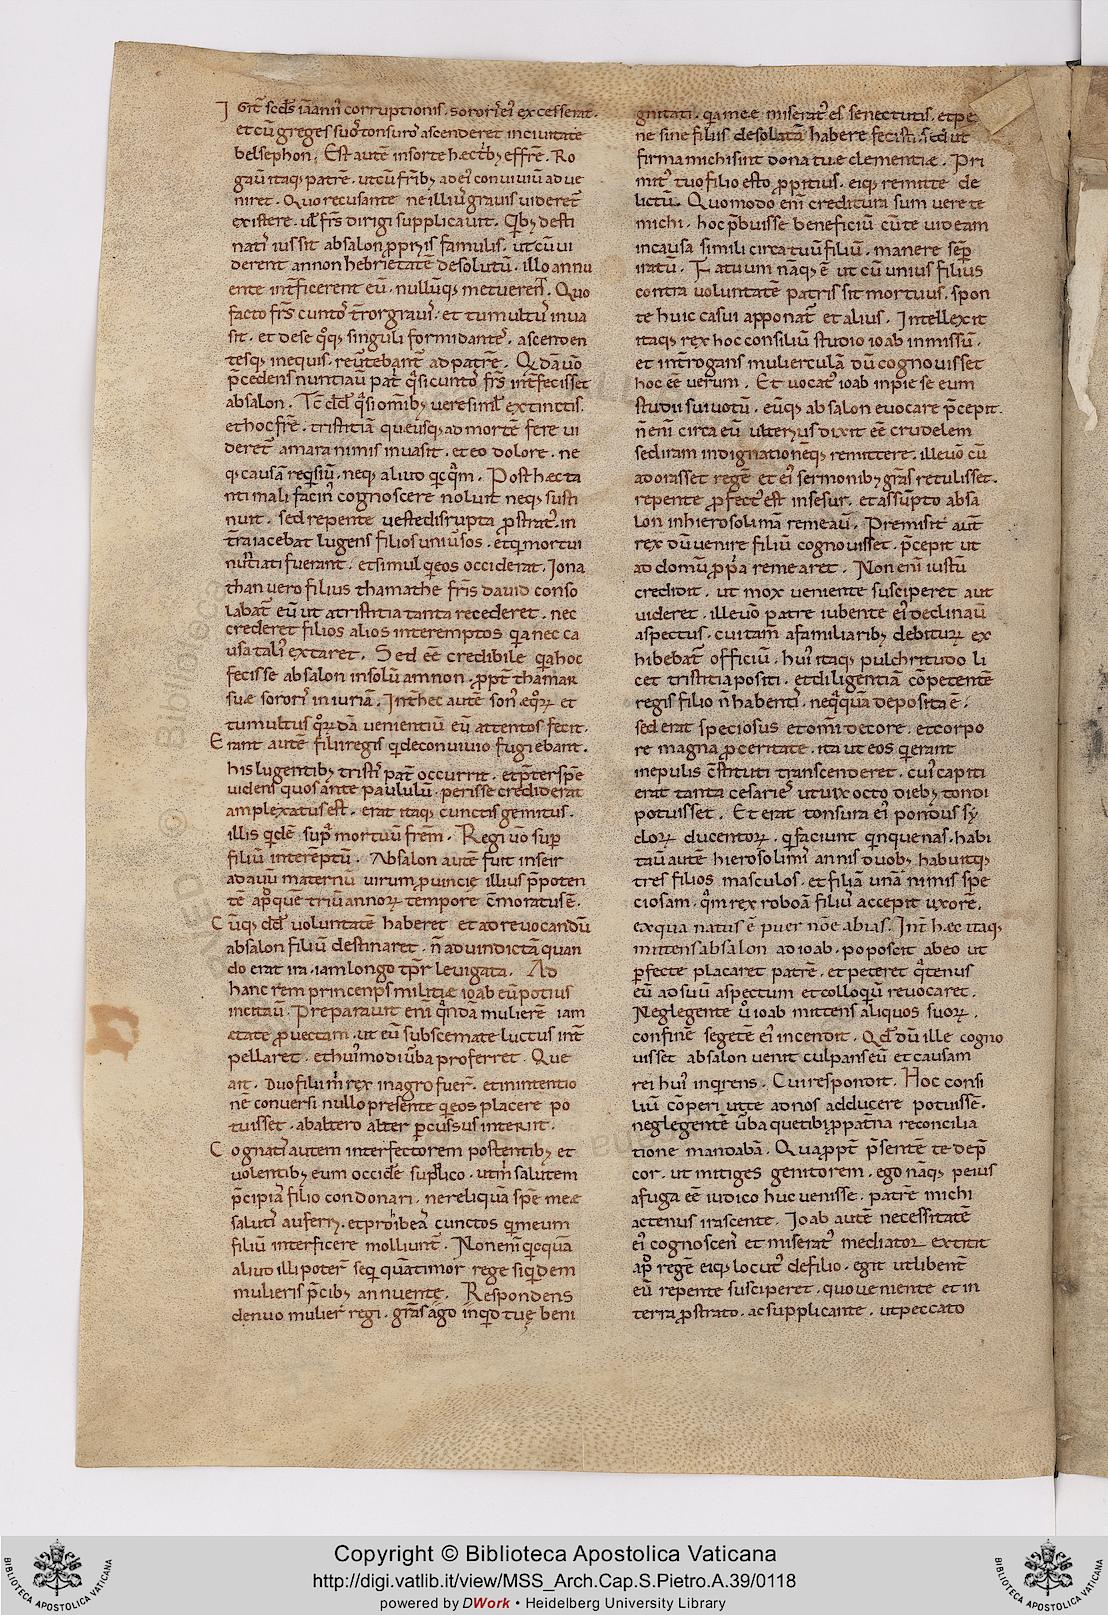 Igit̄ scd̄s iā annꝰ corruptionis . sororꝭ eiꝰ excesserat .
et cū greges suoꝭ tonsurꝰ ascenderet in ciuitate
belsephon . Est autē in sorte hæc tribꝫ effrē . Ro
gauit itaqꝫ patrē . ut cū fr̄ibꝫ ad eiꝰ conuiuiū adue
niret . Quo recusante ne illiꝰ grauis uideret̄
existere . ut fr̄s dirigi supplicauit . Qibꝫ desti
natiꝭ iussit absalon ꝓpriis famulis . ut cū ui
derent amnon hebrietatē desolutū . illo annu
ente int̄ficerent eū . nullūqꝫ metuerenꝭ . Quo
facto fr̄s cunctoꝭ t̄ror grauiꝭ . et tumultuꝭ inua
sit . et de se qꝫqꝫ singuli formidanteꝭ . ascenden
tesqꝫ in equis . reūtebant̄ ad patrē . Qꝺā uō
p̄cedens nuntiauit patꝭ qͣsi cunctoꝭ fr̄s int̄fecisset
absalon . Tē dd̄ qͣsi om̄ibꝫ uere simꝉ extinctis .
et hoc fr̄e . tristitiā que usqꝫ ad mortē fere ui
deret̄ amara nimis inuasit . et eo dolore . ne
qꝫ causā reqͥsiuꝭ . neqꝫ aliud qͥcqͣm . Post hæc ta
nti mali facinꝰ cognoscere noluit neqꝫ susti
nuit . sed repente ueste disrupta ꝓstratꝰ . in
tra iacebat lugens filios uniūsos . et qͥ mortui
nuntiati fuerant . et simul qͥ eos occiderat . Iona
than uero filius thamathe fr̄is dauid conso
labat̄ eū ut a tristitia tanta recederet . nec
crederet filios alios interemptos qͥa nec ca
usa taliꝭ extaret . Sed eē credibile qͥa hoc
fecisse absalon in solū amnon . ꝓpt̄ thamar
suæ sororꝭ iniuriā . Int̄ hec autē sonꝰ eqꝫoꝝ . et
tumultus qͦꝝdā uenientiū eū attentos fecit .
Erant autē filii regis qͥ de conuiuio fugiebant .
his lugentibꝫ tristiꝭ pat̄ occurrit . et p̄ter spē
uidens quos ante paululū . perisse crediderat
amplexatus est . erat itaqꝫ cunctis gemitus .
illis qͥdē supꝭ mortuū frēm . Regi uō supꝭ
filiū interēptū . Absalon autē fuit in seir
ad auū maternū uirum ꝓuincie illius p̄poten
tē apͩ quē triū annoꝝ tempore cōmoratus ē .
Cūqꝫ dd̄ uoluntatē haberet et ad reuocandū
absalon filiū destinaret . n̄ ad uindictā quan
do erat ira . iam longo tp̄r leuigata . Ad
hanc rem princenps militiæ ioab eū potius
incitauꝭ . Preparauit enī qͣndā mulierē iam
etate ꝓuectam . ut eū sub scemate luctus int̄
pellaret . et huiꝰmodi ūba proferret . Que
ait . Duo filii m̄ rex in agro fuerꝭ . et in intentio
nē conuersi nullo presente qͥ eos placere po
tuisset . ab altero alter ꝑcussus interiit .
Cognatiꝭ autem interfectorem postentibꝫ et
uolentibꝫ eum occidere supplico . ut m̄ salutem
p̄cipiaꝭ filio condonari . ne reliquā spē meæ
salutiꝭ auferri . et prohibeaꝭ cunctos qͥ meum
filiū interficere moliunt̄ . Non enī qͥcquā
aliud illi poterꝭ seqͥ qua timor rege siqͥdem
mulieris p̄cibꝫ annuente . Respondens
denuo mulier regi . grās ago inqͥd tuę beni
gnitati . qͥa meæ miseratꝰ es senectutis . et pe
ne sine filiis desolatā habere fecisti . sed ut
firma michi sint dona tuæ clementiæ . Pri
mitꝰ tuo filio esto ꝓpitius . eiqꝫ remitte de
lictū . Quomodo enī creditura sum uere te
michi . hoc p̄buisse beneficiū cū te uideam
in causa simili circa tuū filiū . manere semꝑ
iratū . Fatuum nāqꝫ ē ut cū unius filius
contra uoluntatē patris sit mortuus . spon
te huic casui apponat̄ et alius . Intellexit
itaqꝫ rex hoc consiliū studio ioab inmissū .
et int̄rogans mulierculā dū cognouisset
hoc eē uerum . Et uocatꝰ ioab inpiese eum
studii sui uotū . eūqꝫ absalon euocare p̄cepit .
n̄ enī circa eū ulterius dixit eē crudelem
sed iram indignationēqꝫ remittere . ille uō cū
adorasset regē et eiꝰ sermonibꝫ grās retulisset .
repente ꝓfectꝰ est in sesur . et assūpto absa
lon in hierosolimā remeauꝭ . Premisit aūt
rex dū uenire filiū cognouisset . p̄cepit ut
ad domū ꝓpͥa remearet . Non enī iustū
credidit . ut mox ueniente susciperet aut
uideret . ille uō patre iubente eiꝰ declinauꝭ
aspectus . cui tam̄ a familiaribꝫ debituꝝ ex
hibebat̄ officiū . huiꝰ itaqꝫ pulchritudo li
cet tristitia positi . et diligentiā cōpetentē
regis filio n̄ habentiꝭ . neqͣquā deposita ē .
sed erat speciosus et om̄i decore . et corpo
re magna ꝓceritate . ita ut eos qͥ erant
in epulis cōstituti transcenderet . cuiꝰ capiti
erat tanta cesaries ut uix octo diebꝫ tondi
potuisset . Et erat tonsura eiꝰ pondus sy
cloꝝ ducentoꝝ . qͥ faciunt qͥnquenas . habi
tauꝭ autē hierosolimiꝭ annis duobꝫ habuitqꝫ
tres filios masculos . et filiā unā nimis spe
ciosam . qͣm rex roboā filiuꝭ accepit uxorē .
ex qua natus ē puer nōe abias . Int̄ hæc itaqꝫ
mittens absalon ad ioab . poposcit ab eo ut
ꝑfecte placaret patrē . et peteret qͣtenus
eū ad suū aspectum et colloqͥū reuocaret .
Neglegente ū ioab mittens aliquos suoꝝ .
confinē segetē eiꝰ incendit . Qd̄ dū ille cogno
uisset absalon uenit culpans eū et causam
rei huiꝰ inqͥrens . Cui respondit . Hoc consi
liū cōperi ut te ad nos adducere potuissē .
neglegentē ūba que tibi ꝓ pat̄na reconcilia
tione mandabā . Qua ꝓpt̄ p̄sentē te dep̄
cor . ut mitiges genitorem . ego nāqꝫ peius
a fuga eē iudico huc uenisse . patrē michi
actenus irascente . Ioab autē necessitatē
eiꝰ cognoscenꝭ et miseratꝰ mediator extitit
apͩ regē eiqꝫ locutꝰ de filio . egit ut libent̄
eū repente susciperet . quo ueniente et in
terra ꝓstrato . ac supplicante . ut peccato
Copyright © Biblioteca Apostolica Vaticana
http://digi.vatlib.it/view/MSS_Arch.Cap.S.Pietro.A.39/0118
powered by DWork • Heidelberg University Library
BIBLIOTECA APOSTOLICA VATICANA
BIBLIOTECA APOSTOLICA VATICANA